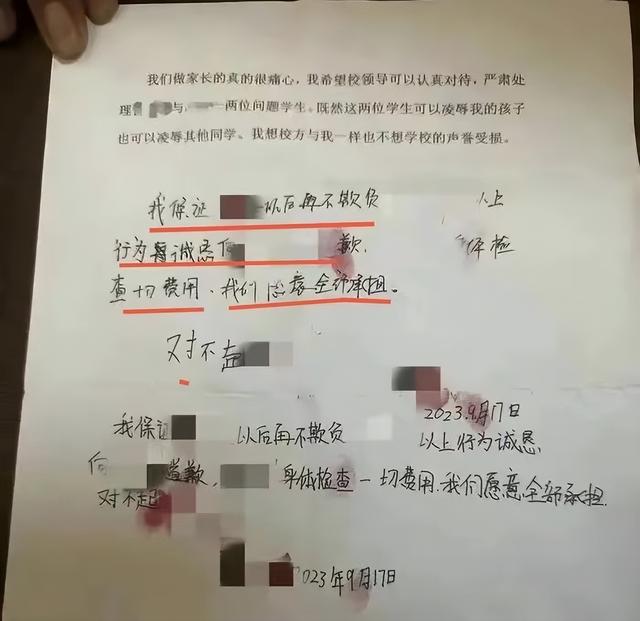 我们做家长的真的很痛心，我希望校领导可以认真对待，严肃处
理 与 两位问题学生。既然这两位学生可以凌辱我的孩子
也可以凌辱其他同学。我想校方与我一样也不想学校的声誉受损。
我保证 以后再不欺负 以上
行为 诚恳 歉， 体检
查一切费用、我们愿意全部承担。
对不起
2023.9月17日
我保证 以后再不欺负 以上行为诚恳
向 道歉， 身体检查一切费用.我们愿意全部承担.
对不起
2023年9月17日